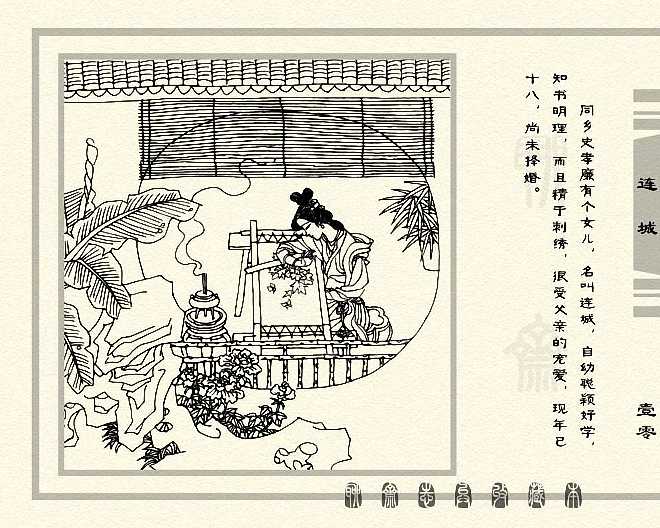 同乡史孝廉有个女儿，名叫连城，自幼聪颖好学，
知书明理，而且精于刺绣，很受父亲的宠爱，现年已
十八，尚未择婚。
连城
壹零
聊斋志异收藏本